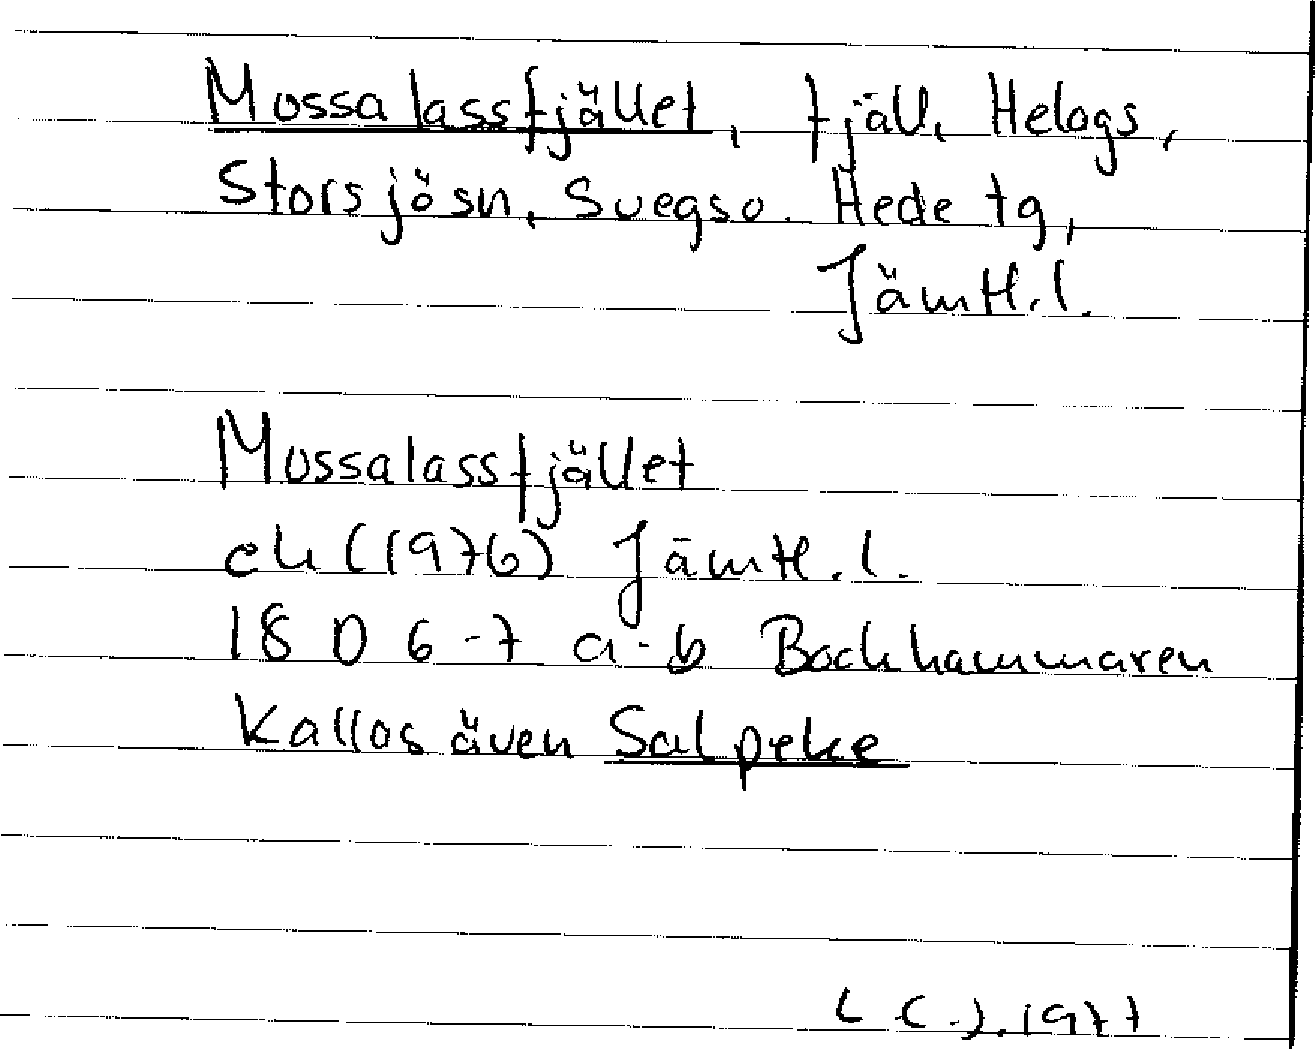 Mossalassfjället, fjäll, Helags,
Storsjösn, Svegso. Hede tg,
Jämtl.l.
Mossalassfjället
ek (1976) Jämtl.l.
18 D 6-7 a-b Bockhammaren
Kallas även Salpeke
1977